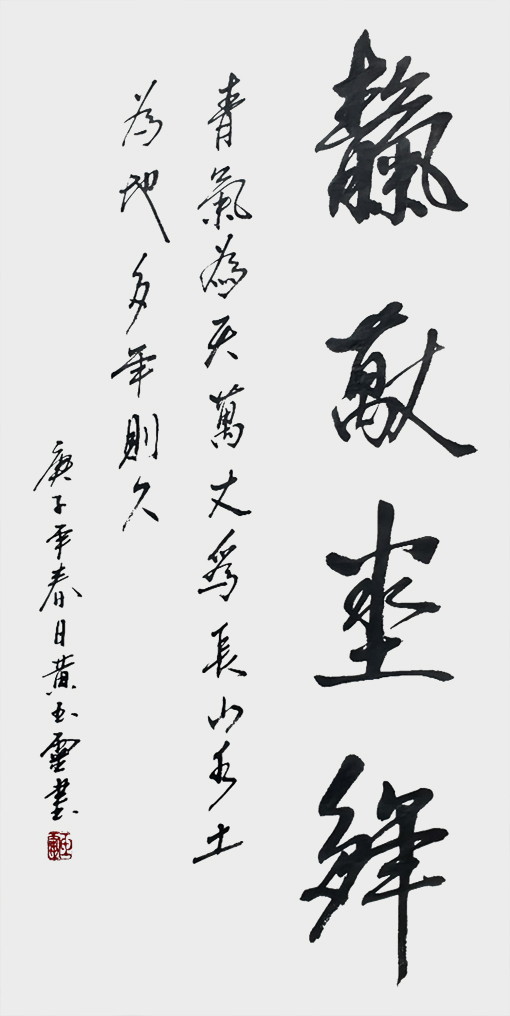 靝埊
青氣為天萬丈為長山水土
為地多年則久
庚子年春日黃玉靈書